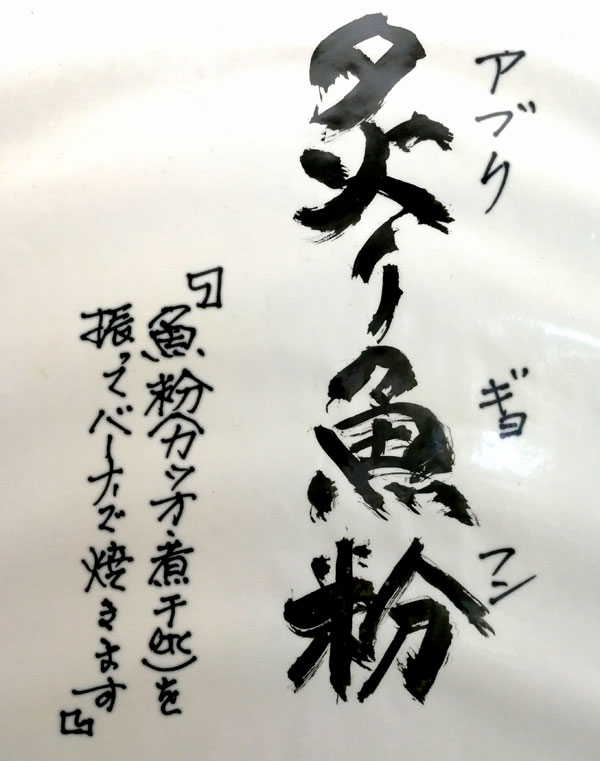 アブリ ギョ フン
炙り魚粉
『魚粉(カツオ・煮干etc)を
振ってバーナーで焼きます』